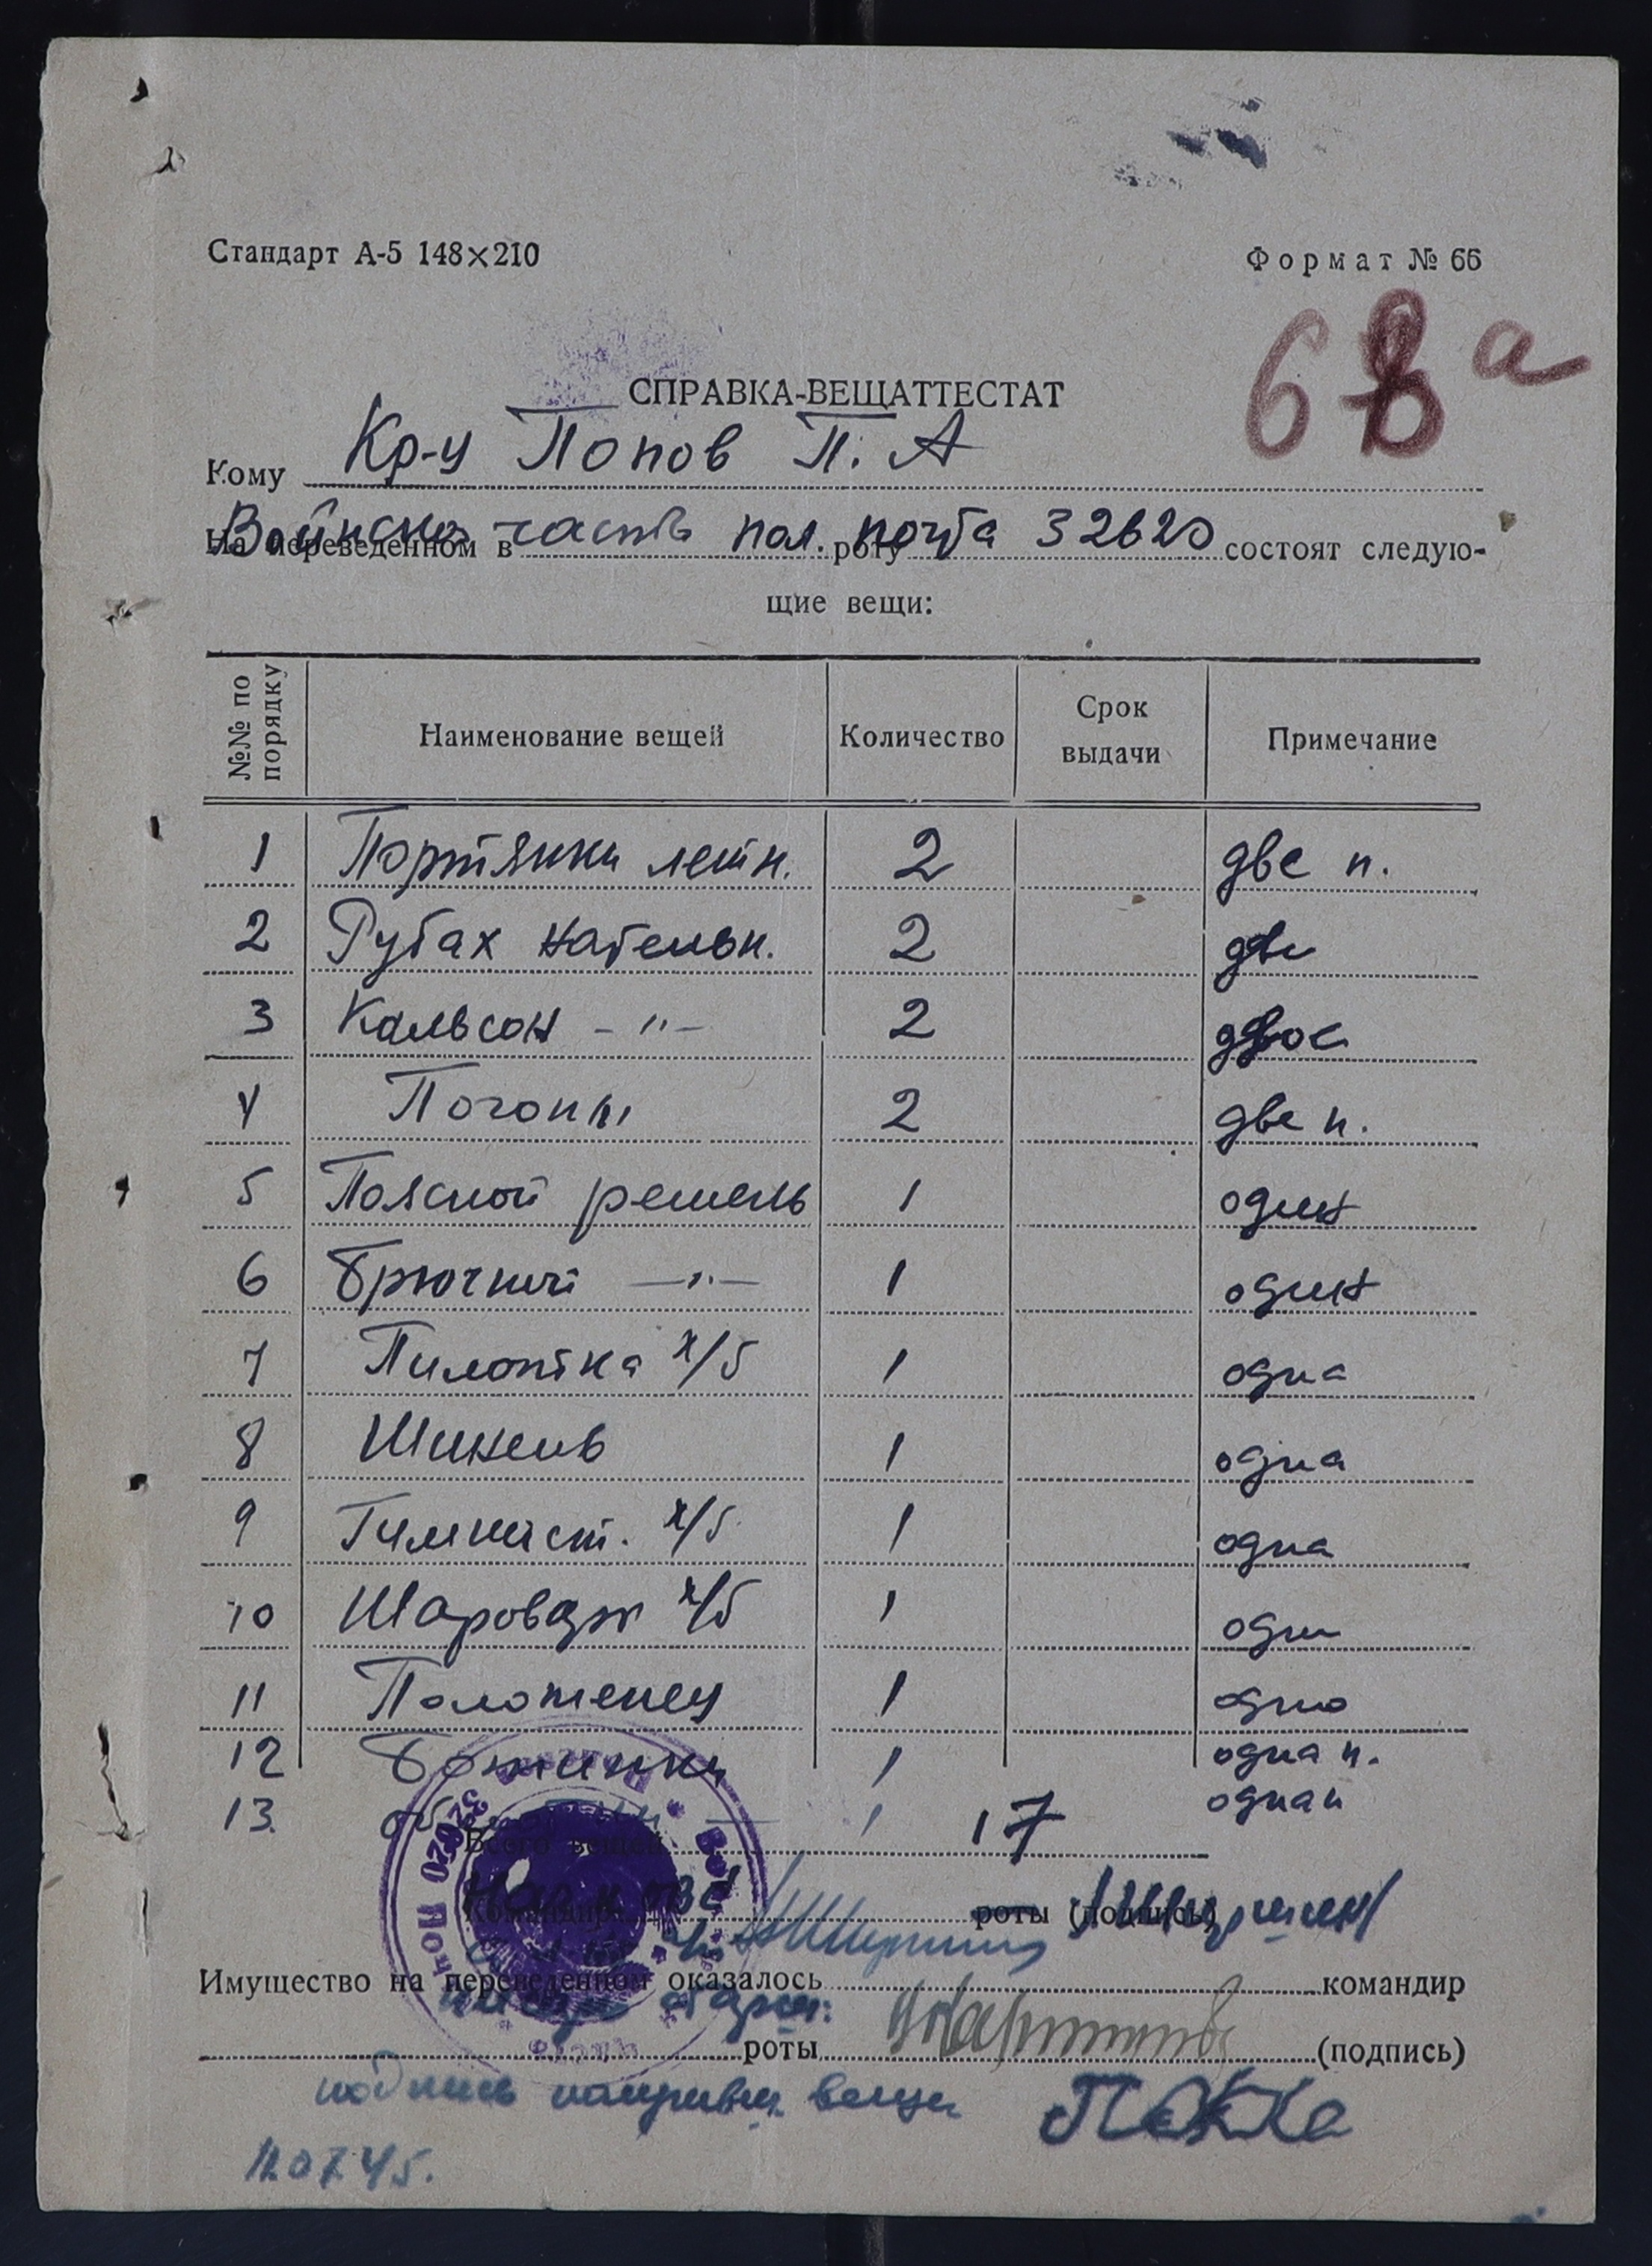 Стандарт А-5 148×210
Формат № 66
68 а
СПРАВКА-ВЕЩАТТЕСТАТ
Кому Кр-у Попов П. А
Войнско часть пол. почта 32620
На переведенном в роту состоят следую-
щие вещи:
№№ по порядку Наименование вещей Количество Срок выдачи Примечание
1 Портянки летн. 2 две п.
2 Рубах нательн. 2 две
3 Кальсон -"- 2 двое
4 Погоны 2 две п.
5 Поясной ремень 1 один
6 Брючный -"- 1 один
7 Пилотка х/б 1 одна
8 Шинель 1 одна
9 Гимнаст. х/б 1 одна
10 Шаровар х/б 1 одни
11 Полотенец 1 одно
12 Ботинки 1 одна п.
13. 1 одна п
Всего вещей 17
Командир роты (подпись)
Имущество на переведенном оказалось командир
роты (подпись)
подпись вещи
12 07 45.